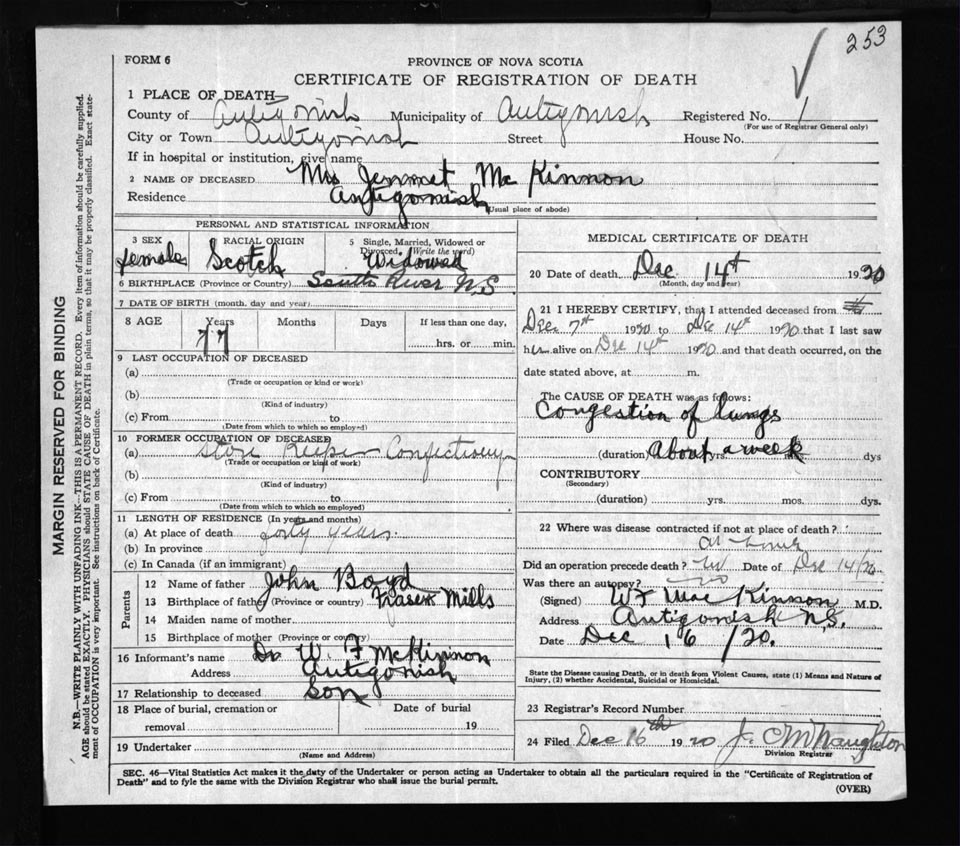 253
FORM 6
PROVINCE OF NOVA SCOTIA
CERTIFICATE OF REGISTRATION OF DEATH
1 PLACE OF DEATH
County of Antigonish Municipality of Antigonish Registered No. 1
(For use of Registrar General only)
City or Town Antigonish Street House No.
If in hospital or institution, give name
2 NAME OF DECEASED Mrs Jennet Mc Kinnon
Residence Antigonish
(Usual place of abode)
PERSONAL AND STATISTICAL INFORMATION
3 SEX female RACIAL ORIGIN Scotch 5 Single, Married, Widowed or Divorced (Write the word) Widowed
6 BIRTHPLACE (Province or Country) South River N.S
7 DATE OF BIRTH (month, day and year)
8 AGE Years Months Days If less than one day,
77 hrs. or min.
9 LAST OCCUPATION OF DECEASED
(a)
(Trade or occupation or kind or work)
(b)
(Kind of industry)
(c) From to
(Date from which to which so employed)
10 FORMER OCCUPATION OF DECEASED
(a) Store Keeper Confectiony
(Trade or occupation or kind of work)
(b)
(Kind of industry)
(c) From to
(Date from which to which so employed)
11 LENGTH OF RESIDENCE (In years and months)
(a) At place of death forty years.
(b) In province
(c) In Canada (if an immigrant)
Parents
12 Name of father John Boyd
13 Birthplace of father (Province or country) Frasers Mills
14 Maiden name of mother
15 Birthplace of mother (Province or country)
16 Informant's name Dr. W. F McKinnon
Address Antigonish
17 Relationship to deceased Son
18 Place of burial, cremation or removal Date of burial 19
19 Undertaker
(Name and Address)
MEDICAL CERTIFICATE OF DEATH
20 Date of death Dec 14th 1920
(Month, day and year)
21 I HEREBY CERTIFY, that I attended deceased from
Dec 7th 1920 to Dec 14th 1920 that I last saw
her alive on Dec 14th 1920 and that death occurred, on the
date stated above, at m.
The CAUSE OF DEATH was as follows:
Congestion of lungs
(duration) About a week yrs. dys
CONTRIBUTORY
(Secondary)
(duration) yrs. mos. dys.
22 Where was disease contracted if not at place of death?
At home
Did an operation precede death? No Date of Dec 14/20
Was there an autopsy? no
(Signed) W F MacKinnon M.D.
Address Antigonish N.S.
Date Dec 16 /20.
State the Disease causing Death, or in death from Violent Causes, state (1) Means and Nature of
Injury, (2) whether Accidental, Suicidal or Homicidal.
23 Registrar's Record Number
24 Filed Dec 16th 1920 J. C McNaughton
Division Registrar
SEC. 46—Vital Statistics Act makes it the duty of the Undertaker or person acting as Undertaker to obtain all the particulars required in the "Certificate of Registration of
Death" and to fyle the same with the Division Registrar who shall issue the burial permit.
(OVER)
MARGIN RESERVED FOR BINDING
N.B.—WRITE PLAINLY WITH UNFADING INK—THIS IS A PERMANENT RECORD. Every item of information should be carefully supplied.
AGE should be stated EXACTLY. PHYSICIANS should STATE CAUSE OF DEATH in plain terms, so that it may be properly classified. Exact state-
ment of OCCUPATION is very important. See instructions on back of Certificate.